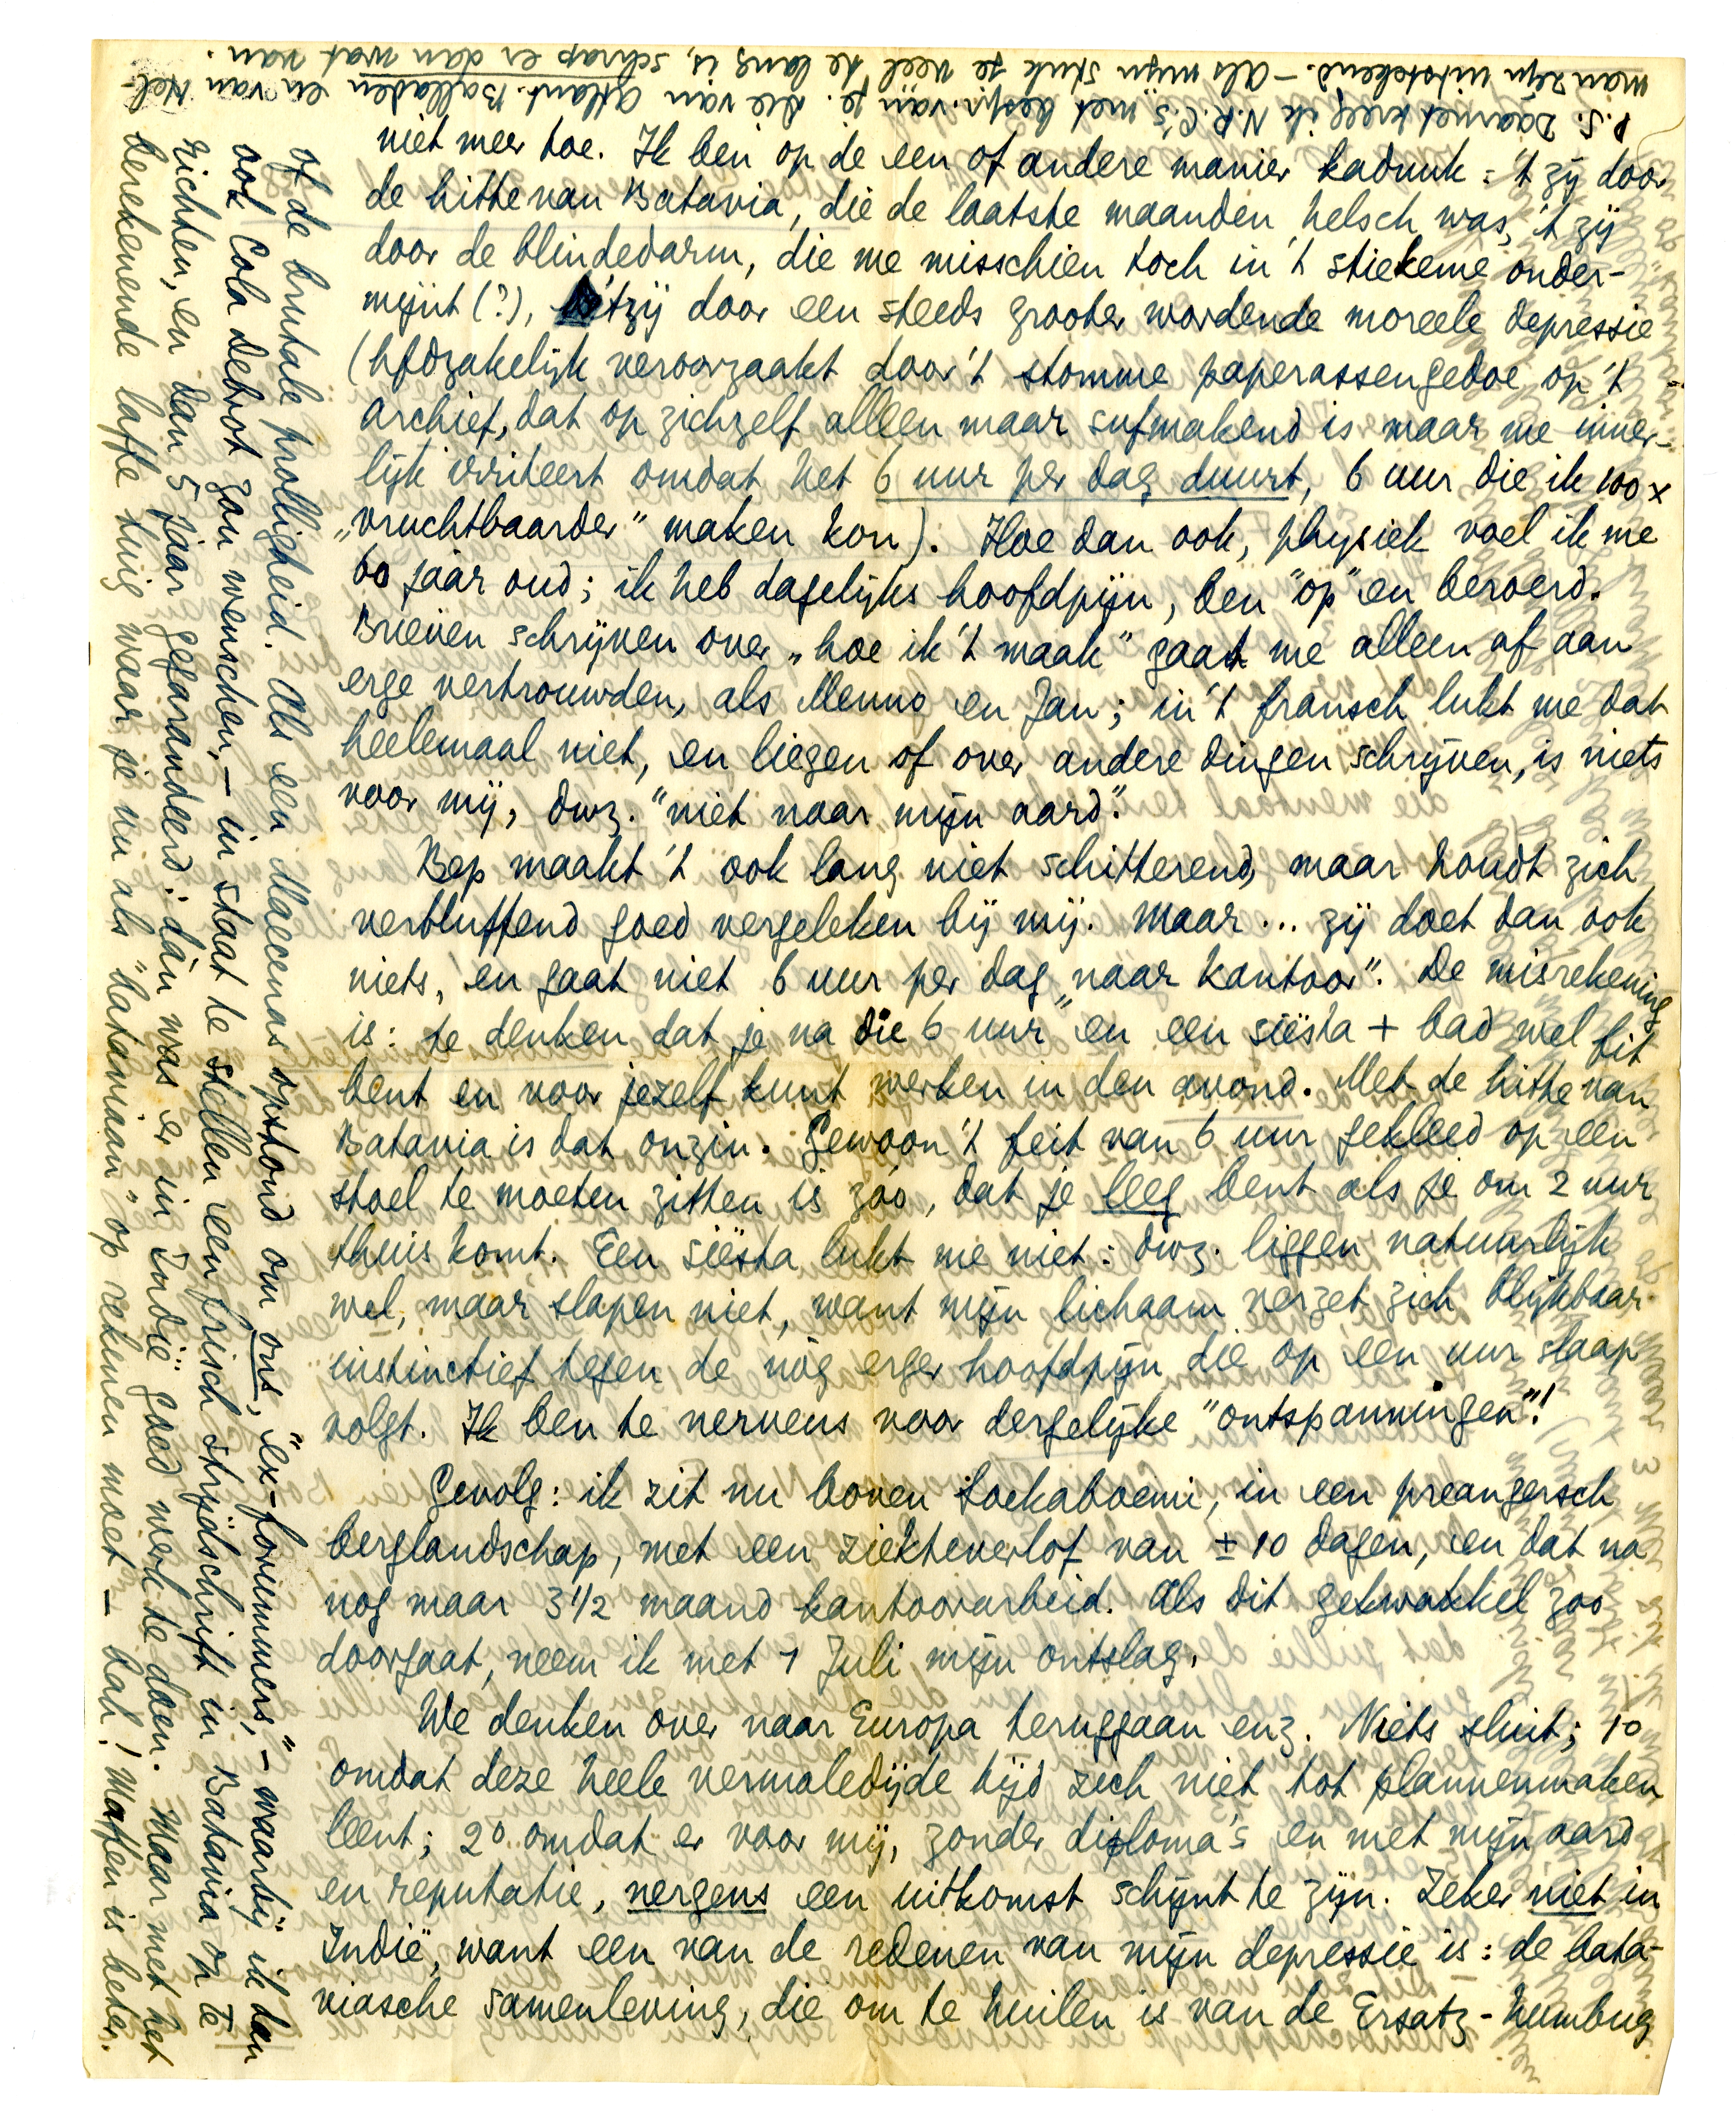 niet meer toe. Ik ben op de een of andere manier kaduuk: 't zij door
de hitte van Batavia, die de laatste maanden helsch was, 't zij
door de blindedarm, die me misschien toch in 't stiekeme onder-
mijnt (?), 'tzij door een steeds grooter wordende moreele depressie
(hfdzakelijk veroorzaakt door 't stomme paperassengedoe op 't
archief, dat op zichzelf alleen maar sufmakend is maar me inner-
lijk irriteert omdat het 6 uur per dag duurt, 6 uur die ik 100 x
„vruchtbaarder” maken kon). Hoe dan ook, physiek voel ik me
60 jaar oud; ik heb dagelijks hoofdpijn, ben "op" en beroerd.
Brieven schrijven over „hoe ik 't maak” gaat me alleen af aan
erge vertrouwden, als Menno en Jan; in 't fransch lukt me dat
heelemaal niet, en liegen of over andere dingen schrijven, is niets
voor mij, dwz. "niet naar mijn aard".
Bep maakt 't ook lang niet schitterend, maar houdt zich
verbluffend goed vergeleken bij mij. Maar... zij doet dan ook
niets, en gaat niet 6 uur per dag „naar kantoor”. De misrekening
is: te denken dat je na die 6 uur en een siësta + bad wel fit
bent en voor jezelf kunt werken in den avond. Met de hitte van
Batavia is dat onzin. Gewoon 't feit van 6 uur gekleed op een
stoel te moeten zitten is zóó, dat je leeg bent als je om 2 uur
thuis komt. Een siësta lukt me niet: dwz. liggen natuurlijk
wel, maar slapen niet, want mijn lichaam verzet zich blijkbaar
instinctief tegen de nóg erger hoofdpijn die op een uur slaap
volgt. Ik ben te nerveus voor dergelijke "ontspanningen"!
Gevolg: ik zit nu boven Soekaboemi, in een preangersch
berglandschap, met een ziekteverlof van ± 10 dagen, en dat na
nog maar 3 1/2 maand kantoorarbeid. Als dit gekwakkel zoo
doorgaat, neem ik met 1 Juli mijn ontslag.
We denken over naar Europa teruggaan enz. Niets sluit; 1º
omdat deze heele vermaledijde tijd zich niet tot plannenmaken
leent; 2º omdat er voor mij, zonder diploma's en met mijn aard
en reputatie, nergens een uitkomst schijnt te zijn. Zeker niet in
Indië, want een van de redenen van mijn depressie is: de bata-
viasche samenleving, die om te huilen is van de Ersatz-humbug
of de brutale prolligheid. Als een Maecenas opstond om ons, "ex-forummers", - waarbij ik dan
ook Cola Debrot zou wenschen, - in staat te stellen een frisch strijdschrift in Batavia op te
richten, en dan 5 jaar gegarandeerd: dàn was er in Indië goed werk te doen. Maar met het
berekenende laffe tuig waar je nu als "dataman" op rekenen moet - bah! Maffen is beter.
P.S. Daarnet kreeg ik N.R.C.'s met bespr. van je. Die van Atlant. Balladen en van Hel-
man zijn uitstekend. - Als mijn stuk je veel te lang is, schrap er dan wat van.